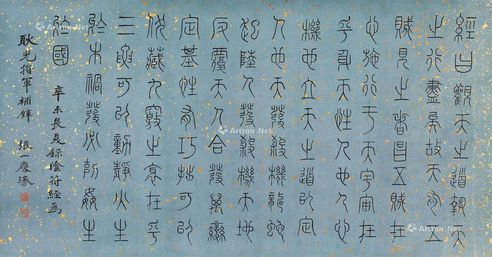 經曰觀天之道執天
之行盡矣故天有五
賊見之者昌五賊在
心施行于天宇宙在
乎身天性人也人心
機也立天之道以定
人也天發殺機龍蛇
起陸人發殺機天地
反覆天人合發萬變
定基性有巧拙可以
伏藏九竅之邪在乎
三要可以動靜火生
於木禍發必剋姦生
於國
辛未長夏錄陰符經為
耿光將軍補壁 張一麐篆
Artron.Net